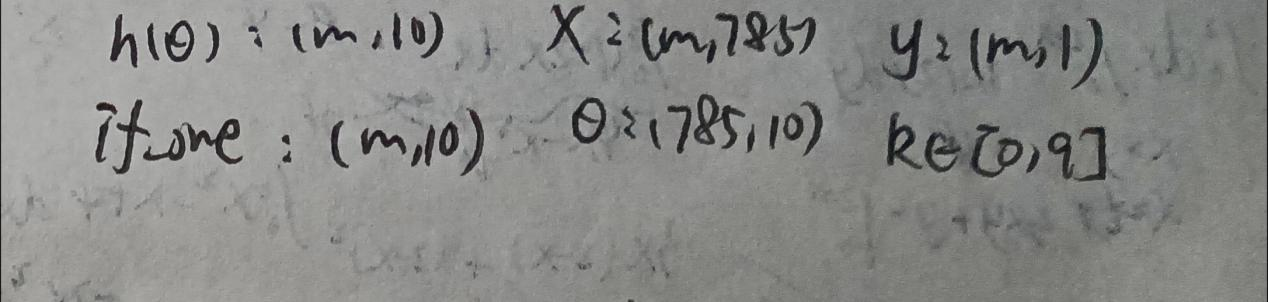 h(θ) : (m,10) X : (m,785) y : (m,1)
if_one : (m,10) θ : (785,10) k∈[0,9]